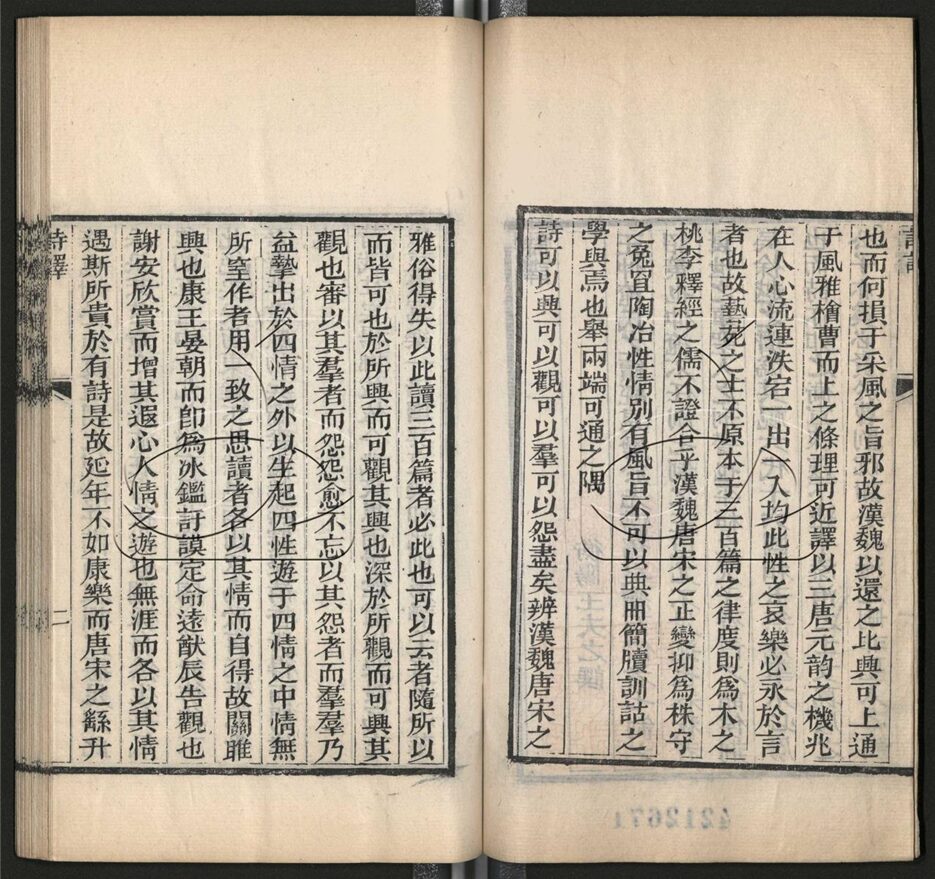 也而何損于采風之旨邪故漢魏以還之比興可上通
于風雅檜曹而上之條理可近譯以三唐元韵之機兆
在人心流連泆宕一出一入均此性之哀樂必永於言
者也故藝苑之士不原本于三百篇之律度則為木之
桃李釋經之儒不證合乎漢魏唐宋之正變抑為株守
之兔罝陶冶性情別有風旨不可以典冊簡牘訓詁之
學與焉也舉兩端可通之隅
詩可以興可以觀可以羣可以怨盡矣辨漢魏唐宋之
雅俗得失以此讀三百篇者必此也可以云者隨所以
而皆可也於所興而可觀其興也深於所觀而可興其
觀也審以其羣者而怨怨愈不忘以其怨者而羣羣乃
益摯出於四情之外以生起四性遊于四情之中情無
所窒作者用一致之思讀者各以其情而自得故關雎
興也康王晏朝而卽為冰鑑訏謨定命遠猷辰告觀也
謝安欣賞而增其遐心人情之遊也無涯而各以其情
遇斯所貴於有詩是故延年不如康樂而唐宋之繇升
詩譯
二
4212671